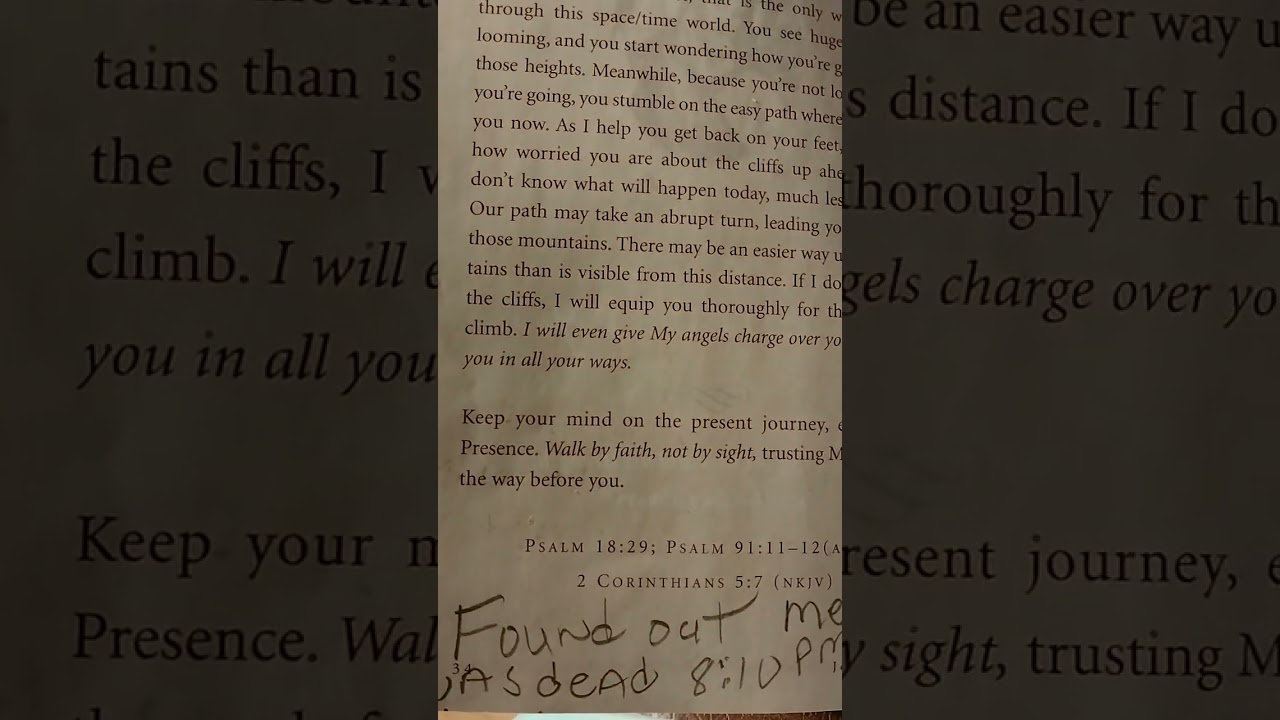 that is the only w
through this space/time world. You see huge
looming, and you start wondering how you're g
those heights. Meanwhile, because you're not lo
you're going, you stumble on the easy path where
you now. As I help you get back on your feet,
how worried you are about the cliffs up ahe
don't know what will happen today, much les
Our path may take an abrupt turn, leading yo
those mountains. There may be an easier way u
tains than is visible from this distance. If I do
the cliffs, I will equip you thoroughly for th
climb. I will even give My angels charge over yo
you in all your ways.
Keep your mind on the present journey, e
Presence. Walk by faith, not by sight, trusting M
the way before you.
PSALM 18:29; PSALM 91:11–12(A
2 CORINTHIANS 5:7 (NKJV)
Found out me
34
As dead 8:10 PM
tains than is
the cliffs, I w
climb. I will e
you in all you
Keep your m
Presence. Wal
be an easier way u
s distance. If I do
thoroughly for th
gels charge over yo
resent journey, e
y sight, trusting M